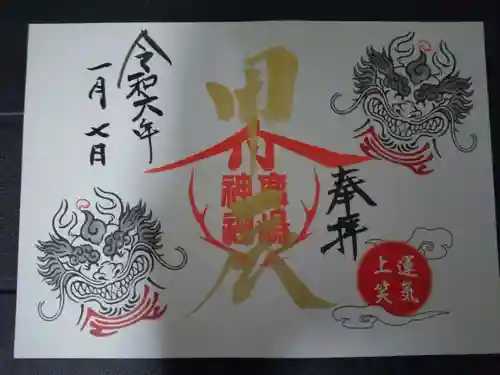 奉拝
甲辰
神社
令和六年
一月七日
運気
上笑